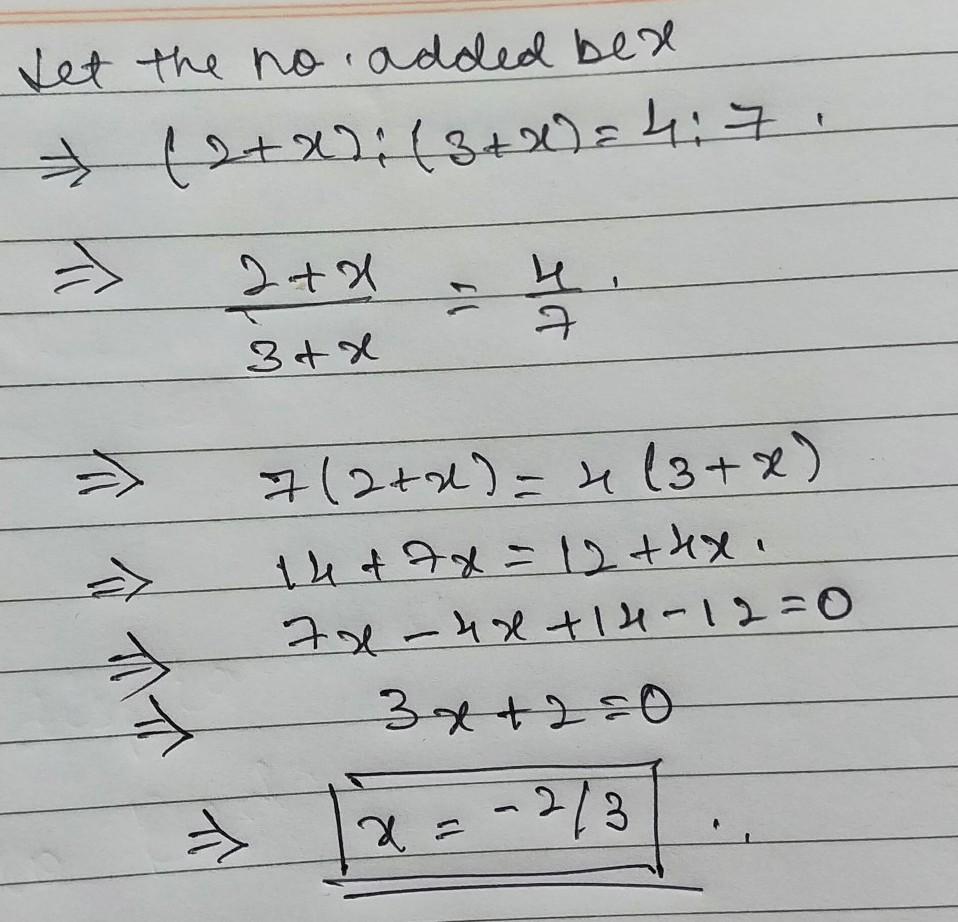 Let the no. added be x
⇒ (2+x):(3+x)=4:7.
⇒ 2+x/3+x = 4/7.
⇒ 7(2+x)=4(3+x)
⇒ 14+7x=12+4x.
⇒ 7x-4x+14-12=0
⇒ 3x+2=0
⇒ x=-2/3..